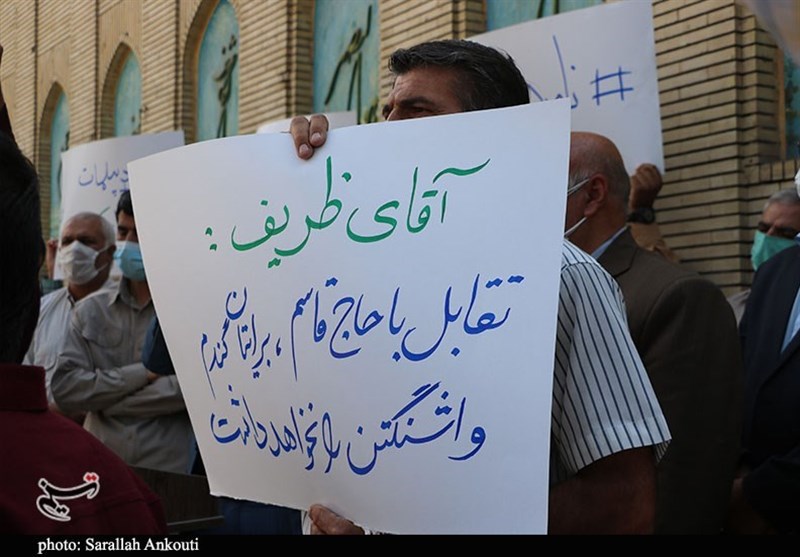 آقای ظریف :
تقابل با حاج قاسم ، برایتان گندم
واشنگتن را نخواهد داشت
# نام
دیپلمات
تسنیم
photo: Sarallah Ankouti